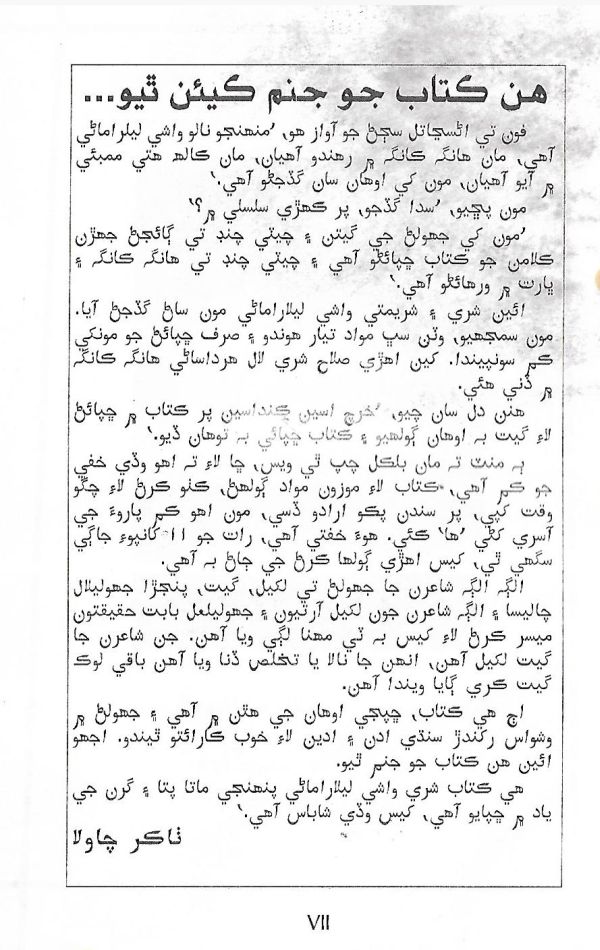 هن ڪتاب جو جنم ڪيئن ٿيو...
فون تي اڻسڃاتل سڄڻ جو آواز هو، ’منهنجو نالو واشي ليلاراماڻي
آهي، مان هانگ ڪانگ ۾ رهندو آهيان، مان ڪالهه هتي ممبئي
۾ آيو آهيان، مون کي اوهان سان گڏجڻو آهي.‘
مون پڇيو، ’سدا گڏجو، پر ڪهڙي سلسلي ۾؟‘
’مون کي جهولڻ جي گيتن ۽ چيٽي چنڊ تي ڳائجڻ جهڙن
ڪلامن جو ڪتاب ڇپائڻو آهي ۽ چيٽي چنڊ تي هانگ ڪانگ ۽
ڀارت ۾ ورهائڻو آهي.‘
ائين شري ۽ شريمتي واشي ليلاراماڻي مون ساڻ گڏجڻ آيا.
مون سمجهيو، وٽن سڀ مواد تيار هوندو ۽ صرف ڇپائڻ جو مونکي
ڪم سونپيندا. کين اهڙي صلاح شري لال هرداساڻي هانگ ڪانگ
۾ ڏني هئي.
هنن دل سان چيو، ’خرچ اسين ڪنداسين پر ڪتاب ۾ ڇپائڻ
لاءِ گيت به اوهان ڳولهيو ۽ ڪتاب ڇپائي به توهان ڏيو.‘
ٻه منٽ ته مان بلڪل چپ ٿي ويس، ڇا لاءِ ته اهو وڏي خفي
جو ڪم آهي، ڪتاب لاءِ موزون مواد ڳولهڻ، ڪٺو ڪرڻ لاءِ چڱو
وقت کپي، پر سندن پڪو ارادو ڏسي، مون اهو ڪم پاروءَ جي
آسري کڻي ’ها‘ ڪئي. هوءَ خفتي آهي، رات جو ١١ کانپوءِ جاڳي
سگهي ٿي، کيس اهڙي ڳولها ڪرڻ جي ڄاڻ به آهي.
الڳ الڳ شاعرن جا جهولڻ تي لکيل، گيت، پنجڙا جهوليلال
چاليسا ۽ الڳ شاعرن جون لکيل آرتيون ۽ جهوليلعل بابت حقيقتون
ميسر ڪرڻ لاءِ کيس به ٽي مهنا لڳي ويا آهن. جن شاعرن جا
گيت لکيل آهن، انهن جا نالا يا تخلص ڏنا ويا آهن باقي لوڪ
گيت ڪري ڳايا ويندا آهن.
اڄ هي ڪتاب، ڇپجي اوهان جي هٿن ۾ آهي ۽ جهولڻ ۾
وشواس رکندڙ سنڌي ادن ۽ ادين لاءِ خوب ڪارائتو ٿيندو. اجهو
ائين هن ڪتاب جو جنم ٿيو.
هي ڪتاب شري واشي ليلاراماڻي پنهنجي ماتا پتا ۽ گرن جي
ياد ۾ ڇپايو آهي، کيس وڏي شاباس آهي.‘
ٺاڪر چاولا
VII